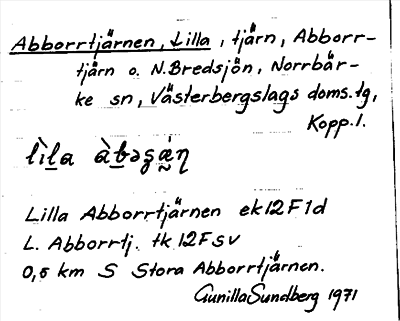 Abborrtjärnen, Lilla, tjärn, Abborr-
tjärn o. N. Bredsjön, Norrbär-
ke sn, Västerbergslags doms.tg,
Kopp.l.
lìla àbəʂæ̀ŋ
Lilla Abborrtjärnen ek 12F1d
L. Abborrtj. tk 12F SV
0,5 km S Stora Abborrtjärnen.
Gunilla Sundberg 1971